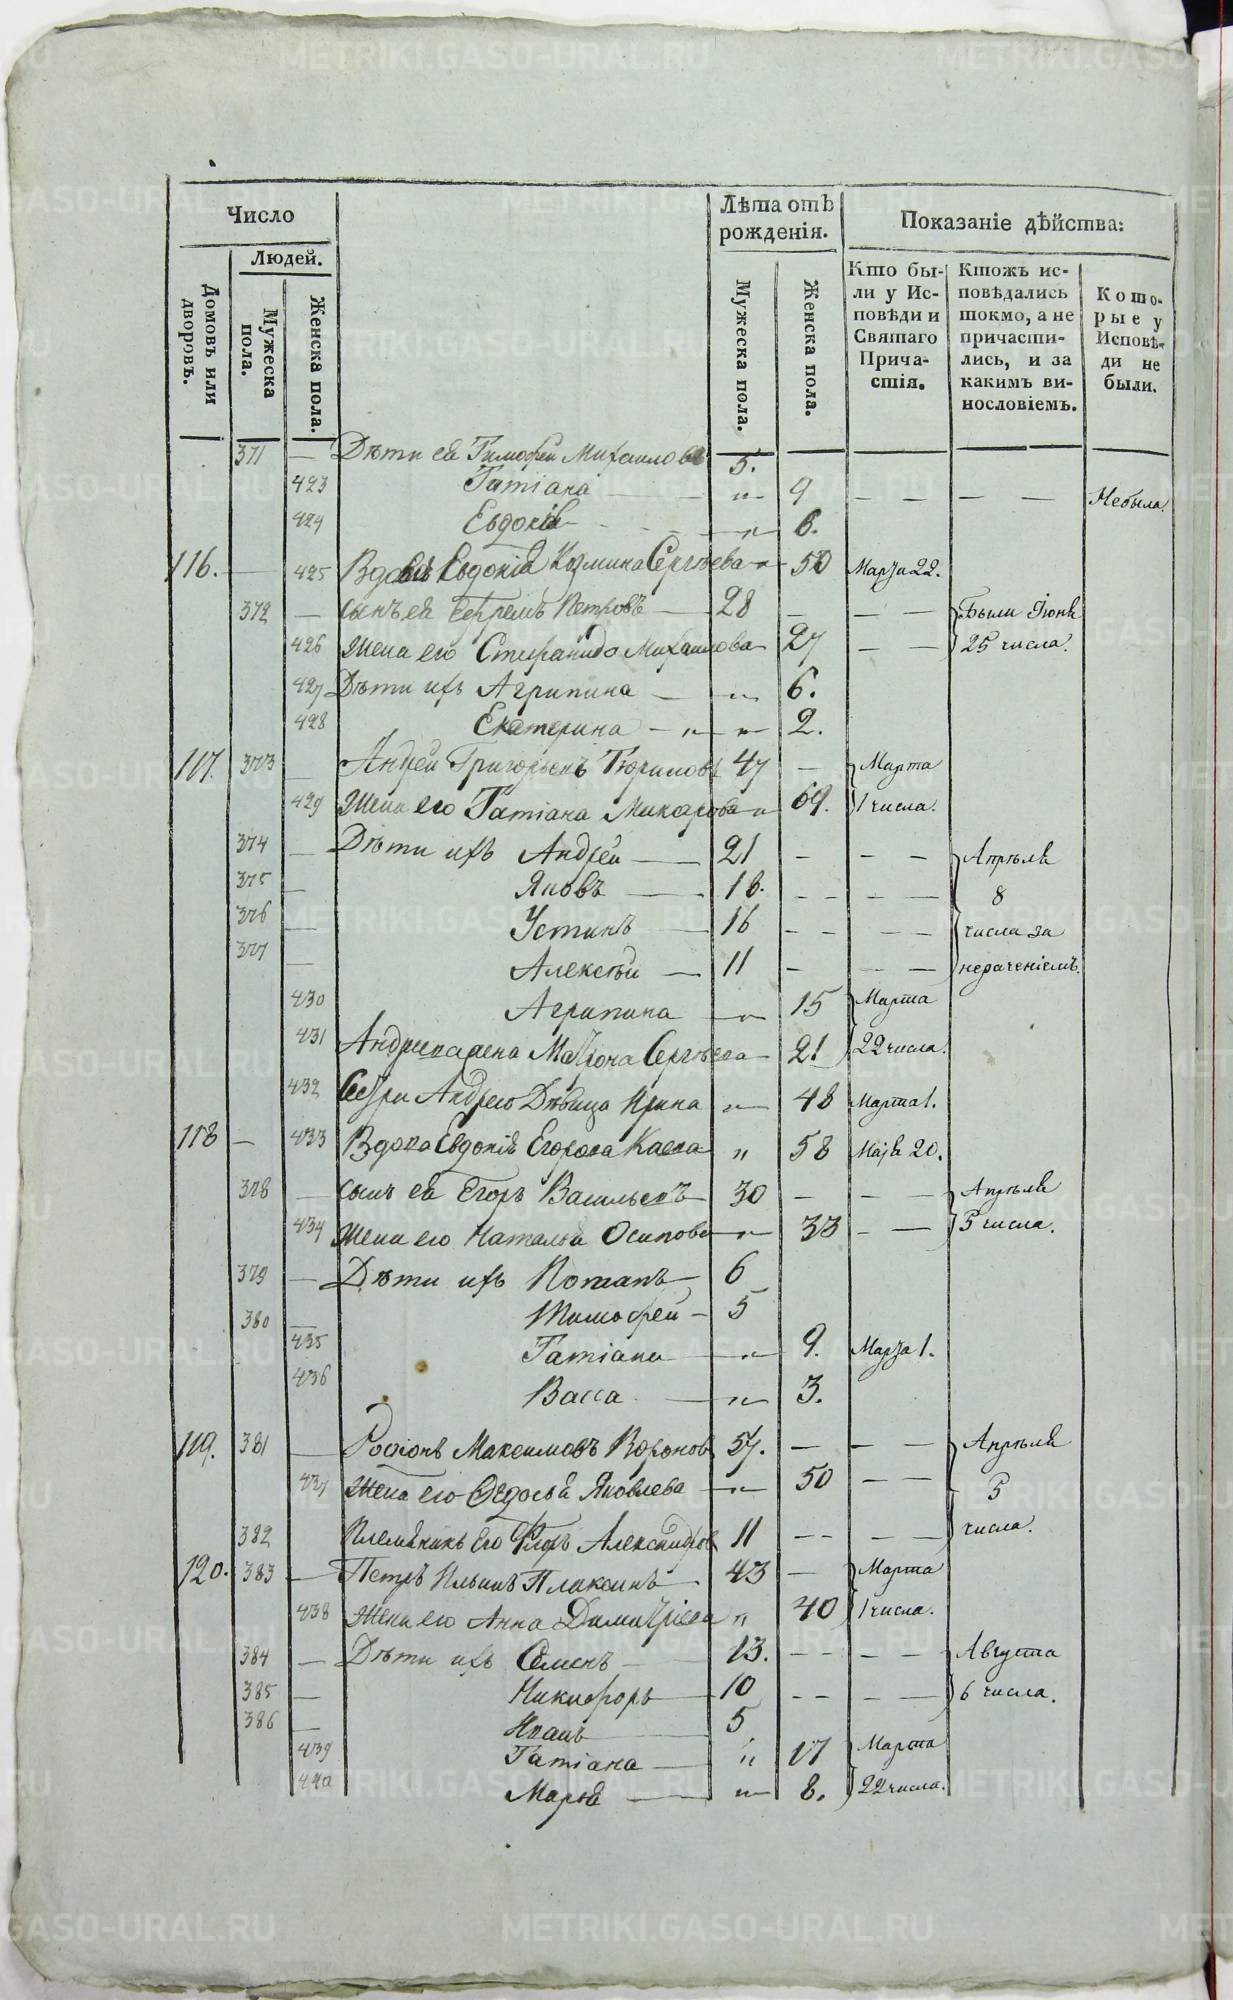 Число
Людей.
Домовъ или дворовъ.
Мужеска пола.
Женска пола.
Лѣта отъ рожденія.
Мужеска пола.
Женска пола.
Показаніе дѣйства:
Кто были у Исповѣди и Святаго Причастія.
Ктожъ исповѣдались токмо, а не причастились, и за какимъ винословіемъ.
Которые у Исповѣди не были.
371 — Дѣти ея Тимофей Михаиловъ 5.
423 Татіана — " — 9 — — — — Небыла.
424 Евдокія — " — 6.
116. — 425 Вдова Евдокія Козмина Сергѣева " 50 Марта 22.
372 — сынъ ея Ефремъ Петровъ — 28 — — — Были Іюня
426 Жена его Стефанида Михаилова — 27 — — 25 числа.
427 Дѣти ихъ Агрипина — " — 6.
428 Екатерина — " — " — 2.
117. 373 — Андрей Григорьевъ Тюриковъ 47 — Марта
429 Жена его Татіана Макарова " 69. 1 числа.
374 — Дѣти ихъ Андрей — 21 — — — Апрѣля
375 — Яковъ — 18. — — — — 8
376 — Устинъ — 16 — — — — числа за
377 — Алексѣй — 11 — — — нераченіемъ.
430 Агрипина — " — 15 Марта
431 Андреяжена Матрона Сергѣева — 21 22 числа.
432 Сестра Андрею Дѣвица Ирина " — 48 Марта 1.
118 — 433 Вдова Евдокія Егорова Каева " 58 Маія 20.
378 — сынъ ея Егоръ Васильевъ — 30 — — — Апрѣля
434 Жена его Наталья Осипова — " — 33 — — 5 числа.
379 — Дѣти ихъ Потапъ — 6
380 — Тимофей — 5
435 Татіана — " — 9. Марта 1.
436 Васса — " — 3.
119. 381 — Родіонъ Максимовъ Вороновъ 57. — — — Апрѣля
437 Жена его Ѳедосья Яковлева — " — 50 — — 5
382 Племянникъ его Флоръ Александровъ 11 — — — — числа.
120. 383 — Петръ Ильинъ Плаксинъ — 43 — Марта
438 Жена его Анна Димитріева " 40 1 числа.
384 — Дѣти ихъ Семенъ — 13. — — — — Августа
385 — Никифоръ — 10 — — — — 6 числа.
386 — Иванъ — 5
439 Татіана — " 17 Марта
440 Марья — " — 8. 22 числа.
METRIKI.GASO-URAL.RU